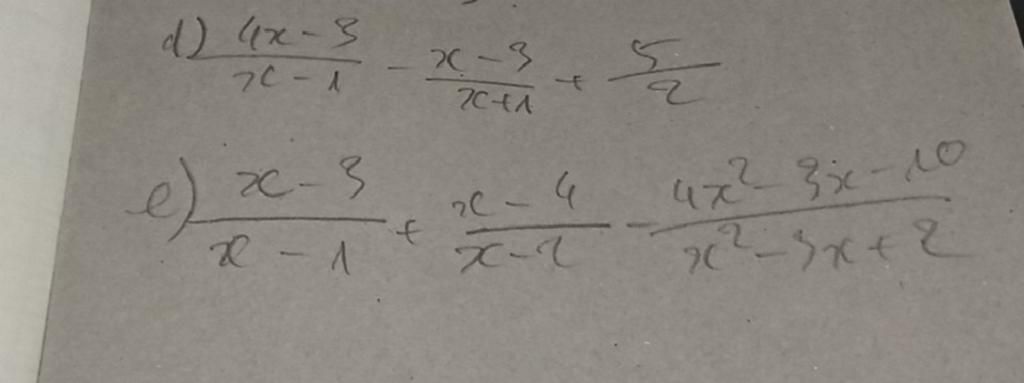 d) \frac{4x-3}{x-1} - \frac{x-3}{x+1} + \frac{5}{2}
e) \frac{x-3}{x-1} + \frac{x-4}{x-2} - \frac{4x^2-3x-10}{x^2-3x+2}